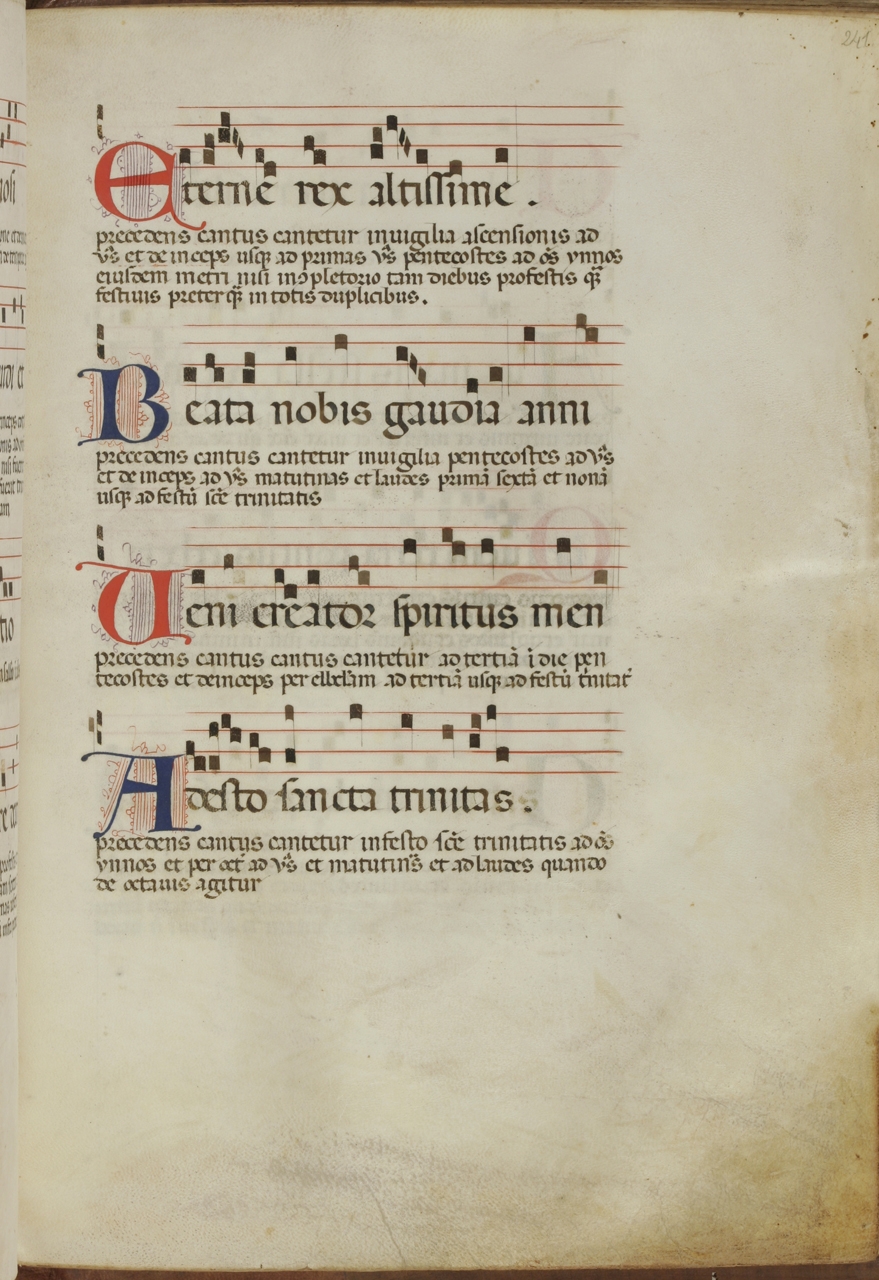 241
Eterne rex altissime .
precedens cantus cantetur inuigilia ascensionis ad
vs̃ et de inceps usqꝫ ad primas vs̃ pentecostes ad oẽs ymnos
eiusdem metri nisi inɔpletorio tam diebus profestis qꝫ
festiuis preter qꝫ in totis duplicibus .
Beata nobis gaudia anni
precedens cantus cantetur inuigilia pentecostes ad vs̃
et de inceps ad vs̃ matutinas et laudes primã sextã et nonã
usqꝫ ad festũ scẽ trinitatis
Ueni creator spiritus men
precedens cantus cantus cantetur ad tertiã ĩ die pen
tecostes et deinceps per ebdam̃ ad tertiã usqꝫ ad festũ tñitat̃
Adesto sancta trinitas .
precedens cantus cantetur infesto scẽ trinitatis ad oẽs
ymnos et per oct̃ ad vs̃ et matutinas̃ et ad laudes quando
de octauis agitur